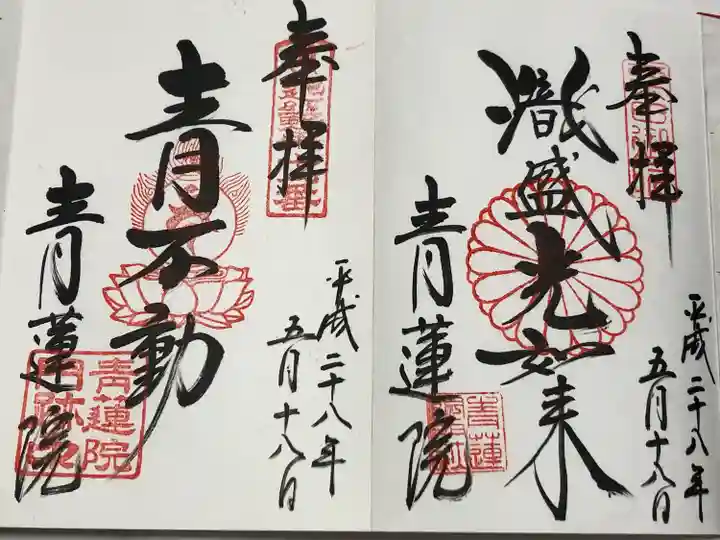 奉拝
熾盛光如来
青蓮院
平成二十八年
五月十八日
青蓮
奉拝
青不動
青蓮院
平成二十八年
五月十八日
青蓮院
門跡